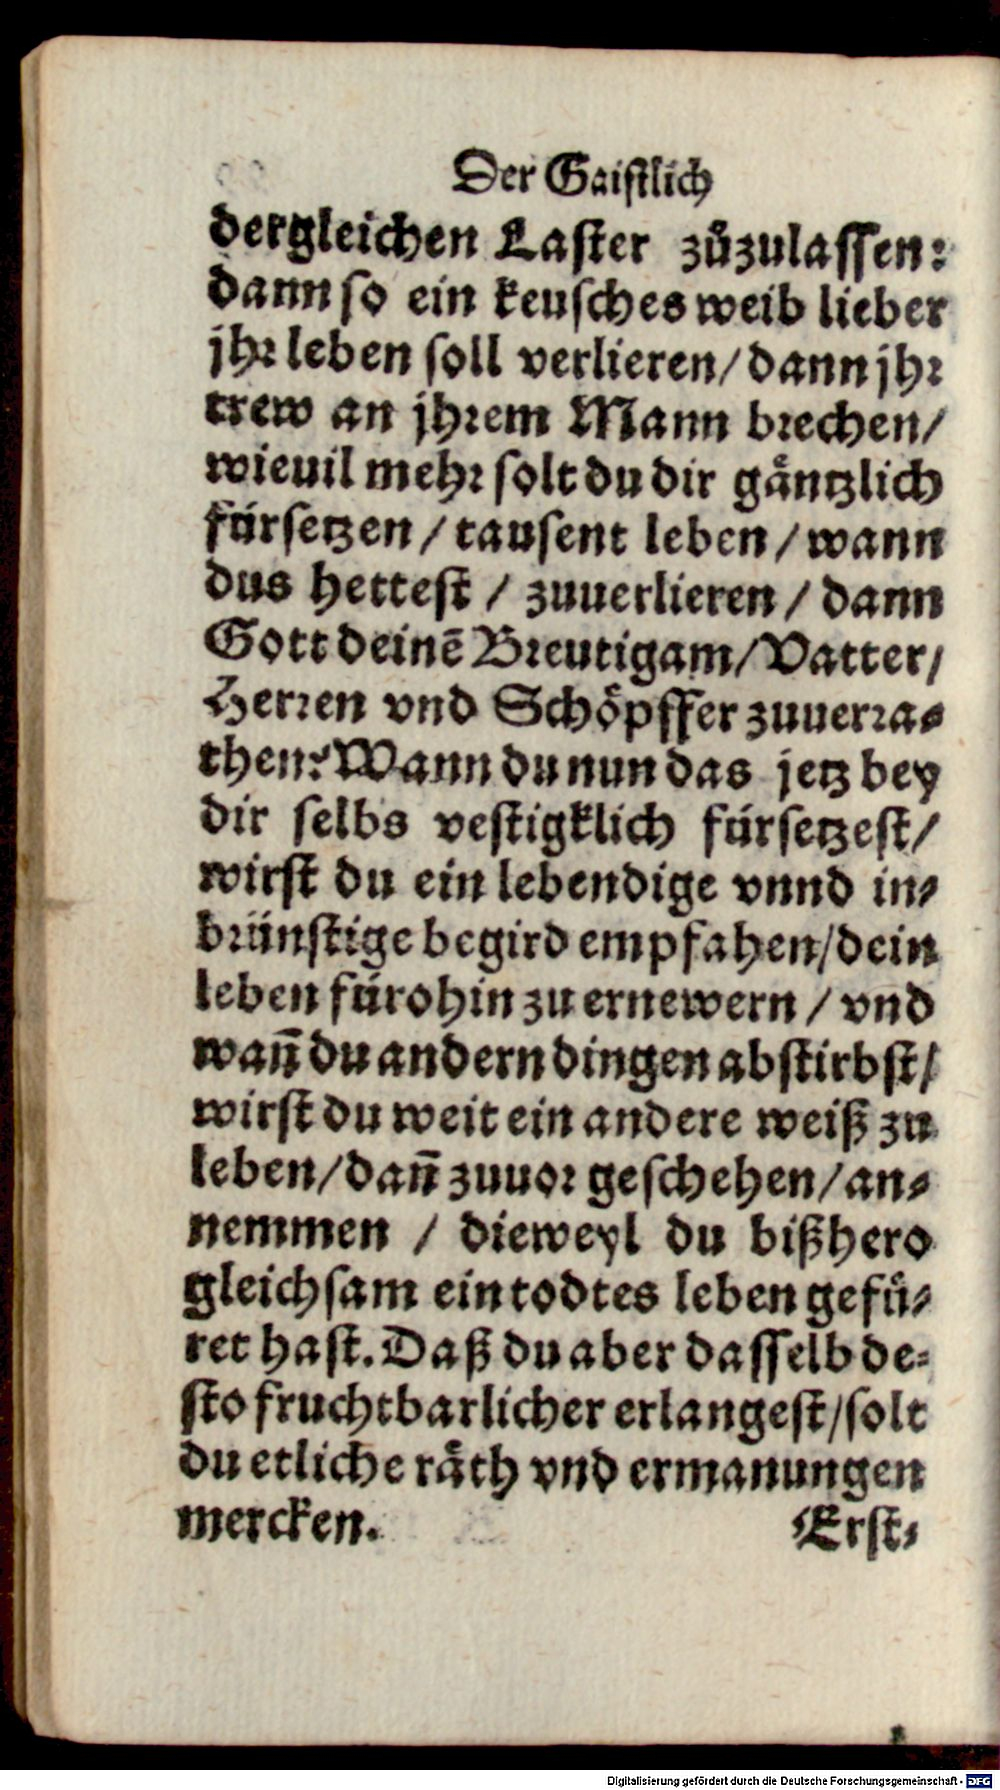 Der Gaistlich
dergleichen Laster zůzulassen:
dann so ein keusches weib lieber
jhr leben soll verlieren/ dann jhr
trew an jhrem Mann brechen/
wieuil mehr solt du dir gäntzlich
fürsetzen / tausent leben / wann
dus hettest / zuuerlieren / dann
Gott deinē Breutigam/ Vatter/
Herren vnd Schöpffer zuuerra-
then? Wann du nun das jetz bey
dir selbs vestigklich fürsetzest/
wirst du ein lebendige vnnd in-
brünstige begird empfahen/ dein
leben fürohin zu ernewern / vnd
wañ du andern dingen abstirbst/
wirst du weit ein andere weiß zu
leben/ dañ zuuor geschehen/ an-
nemmen / dieweyl du bißhero
gleichsam ein todtes leben gefü-
ret hast. Daß du aber dasselb de-
sto fruchtbarlicher erlangest/ solt
du etliche räth vnd ermanungen
mercken. Erst-
Digitalisierung gefördert durch die Deutsche Forschungsgemeinschaft - DFG